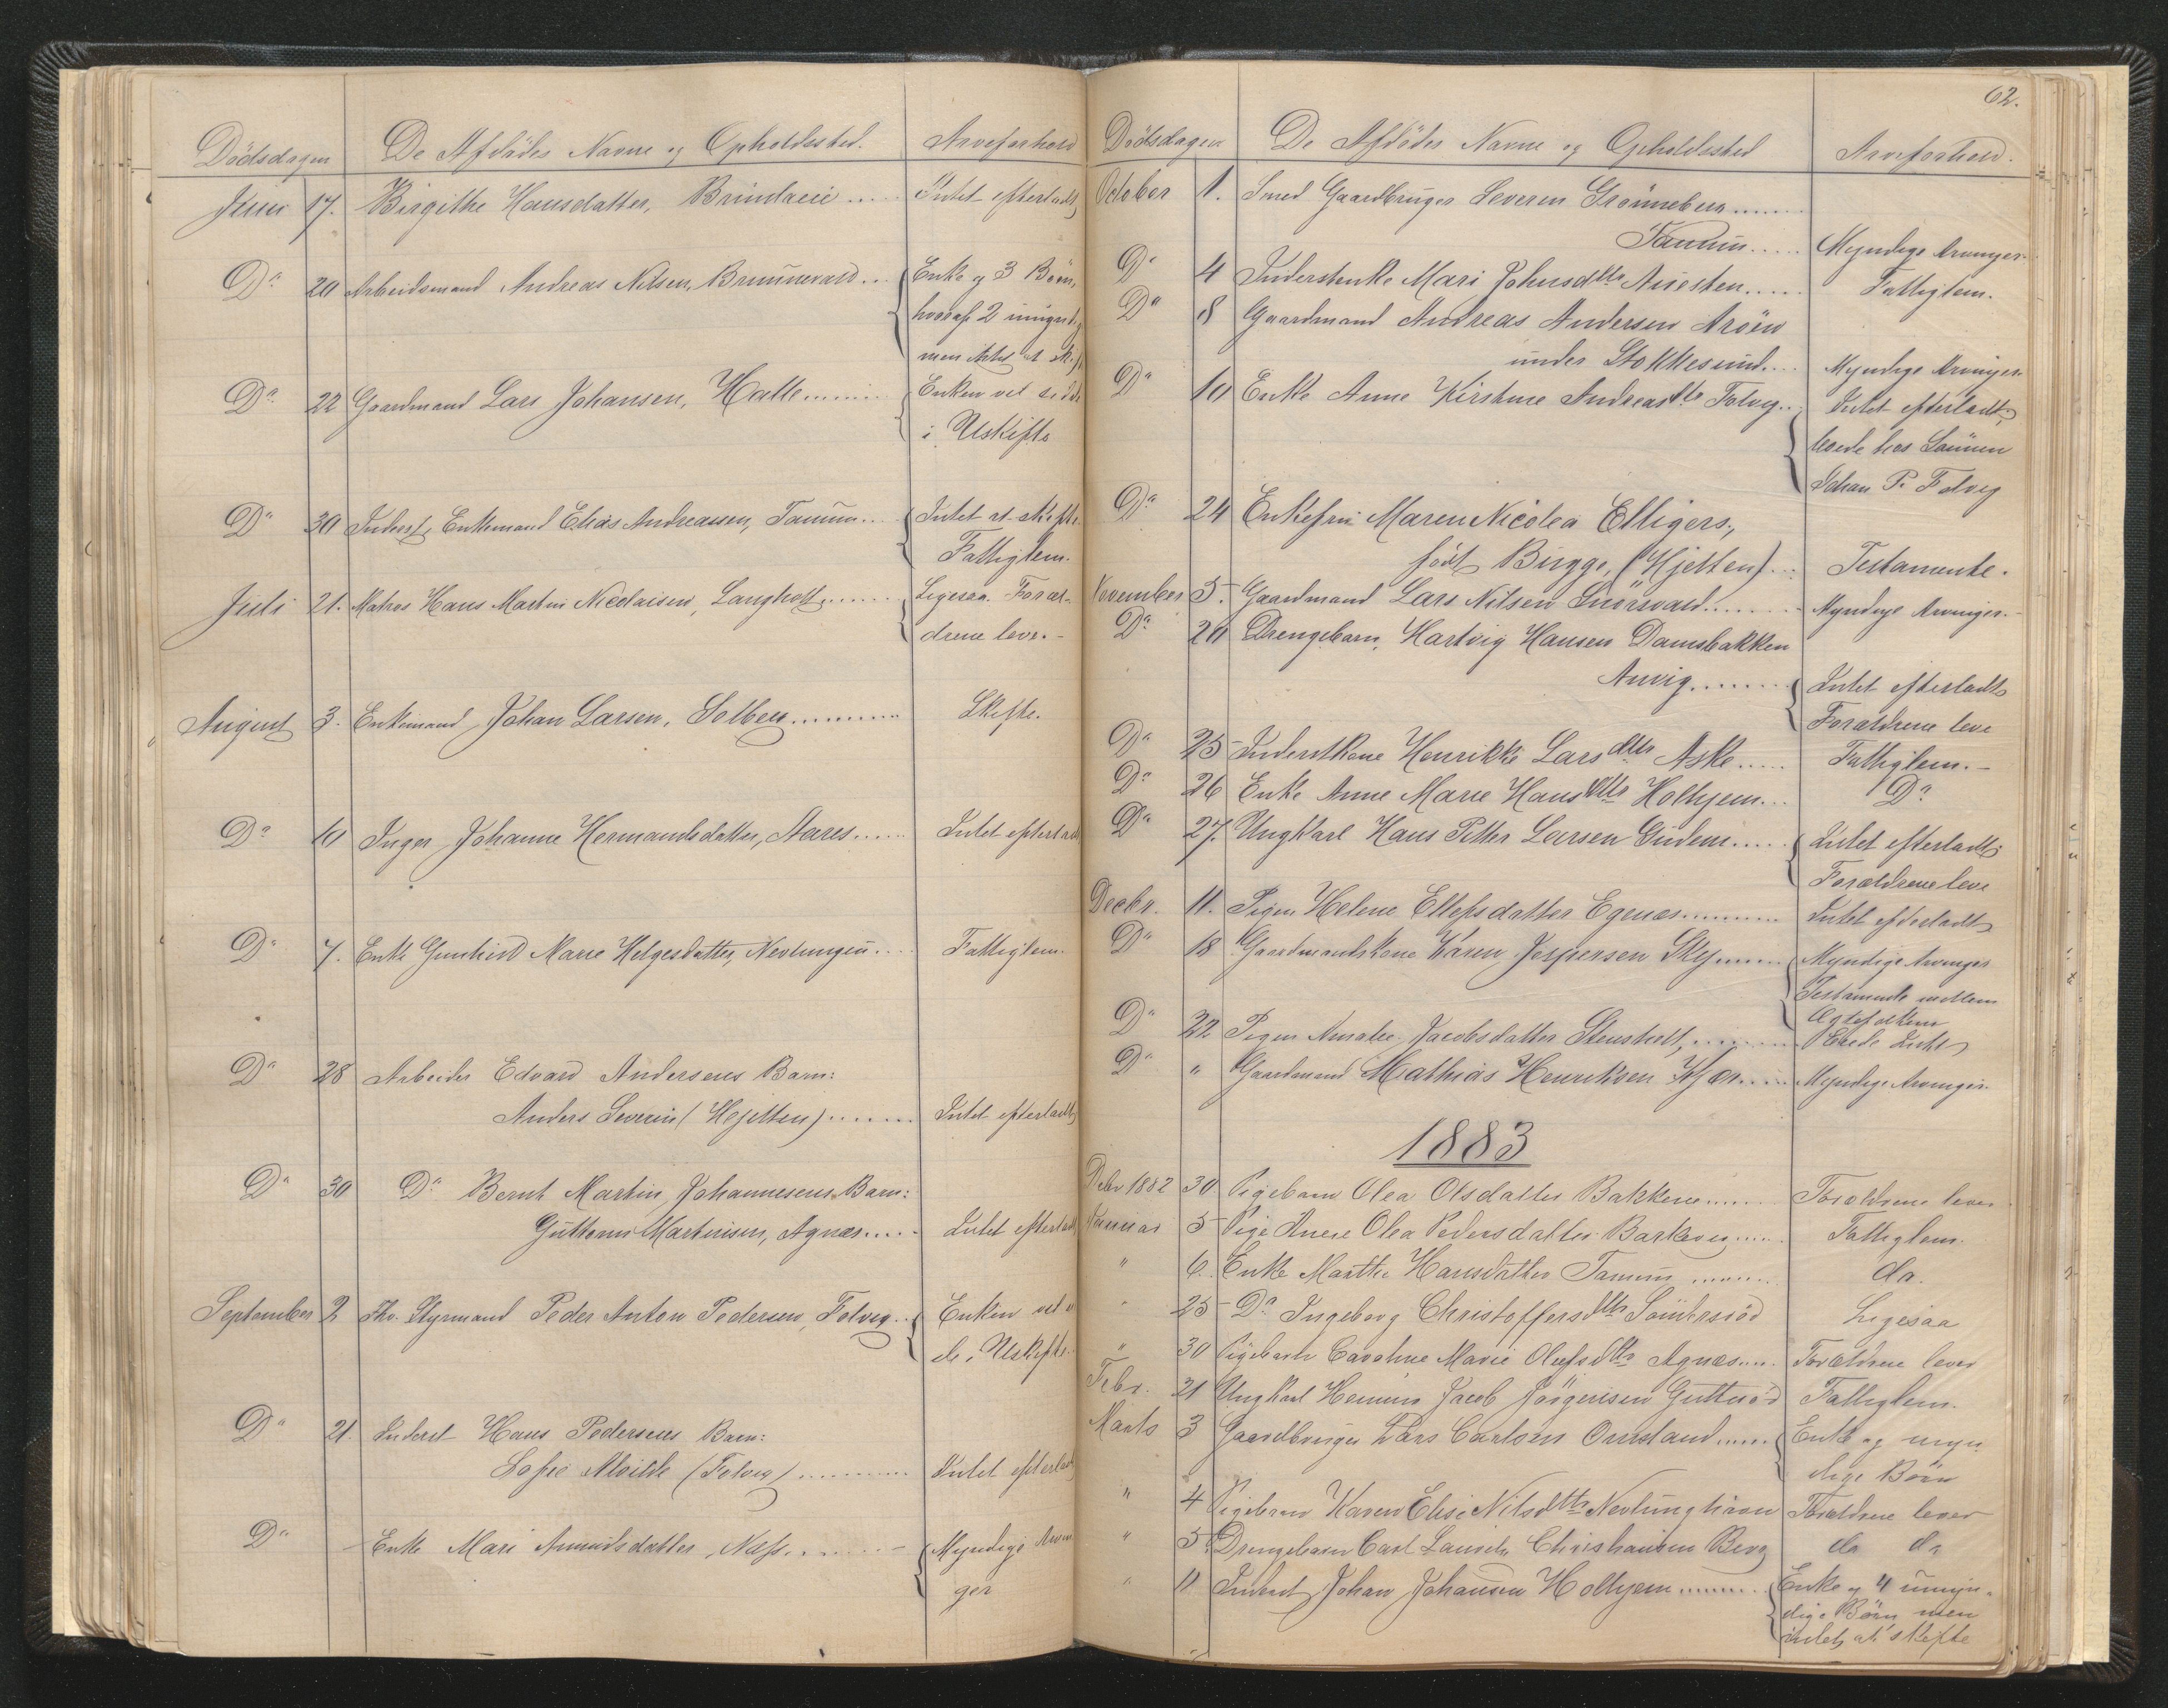 Dödsdagen De Afdödes Navne og Opholdssted. Arveforhold
Juni 17. Birgithe Hansdatter, Brundaeie ..... Intet efterladt
Do 20 Arbeidsmand Andreas Nilsen, Brunnevald ... Enke og 3 Børn,
hvoraf 2 umynd
men Intet at
Do 22 Gaardmand Lars Johansen, Halle ....... Enken vil
i Uskifte
Do 30 Inderst, Enkemand Elias Andreassen, Tanum ... Intet at skifte.
Fattiglem.
Juli 21. Matros Hans Martin Nicolaisen, Langholt ....... Ligesaa. Foræl-
drene leve. -
August 3. Enkemand Johan Larsen, Solberg .......... Skifte.
Do 10 Inger Johanne Hermandsdatter, Nares ...... Intet efterladt
Do 7. Enke Gunhild Marie Helgesdatter, Nevlungen .... Fattiglem.
Do 28 Arbeider Edvard Andersens Barn:
Anders Severin (Hejelten) ....... Intet efterladt
Do 30 Do Bernt Martin Johannesens Barn:
Guttorm Martinisen, Agnæs ..... Intet efterladt
September 2 Fhv. Styrmand Peder Anton Pedersen, Folvig .. Enken vil
de i Uskifte.
Do 21. Inderst Hans Pedersens Barn:
Sofie Alvilde (Folvig) .......... Intet efterladt
Do Enke Mari Amundsdatter, Næss ........ Myndige Arvin
ger
62.
Dödsdagen De Afdödes Navne og Opholdssted Arveforhold.
October 1. Smed Gaardbruger Severin Grönneberg .......
Tanum ..... Myndige Arvinger.
Do 4 Inderstenke Mari Johnsdtr Auesten ..... Fattiglem.
Do 8 Gaardmand Andreas Andersen Aröen
under Stokkesund .... Myndige Arvinger.
Do 10 Enke Anne Kirstine Andreasdtr Folvig .. Intet efterladt,
levede hos Sönnen
Johan P. Folvig
Do 24 Enkefru Maren Nicolea Elligers,
født Bugge, (Hjelten) ... Testamente.
November 3. Gaardmand Lars Nilsen Snörsvald ........ Myndige Arvinger. -
Do 20 Drengebarn, Hartvig Hansen Damsbakken
Anvig ........ Intet efterladt
Forældrene leve
Do 25 Inderstkone Henrikke Larsdtr Aske ..... Fattiglem. -
Do 26 Enke Anne Marie Hansdtr Holtyem ... Do
Do 27. Ungkarl Hans Petter Larsen Gudem ..... Intet efterladt;
Forældrene leve
Decbr. 11. Pigen Helene Ellefsdatter Egenæs .......... Intet efterladt
Do 18 Gaardmandskone Karen Jespersen Sky ....... Myndige Arvinger
Testamente mellem
Ægtefolkene
Do 22 Pigen Jacobsdatter Stensholt, ......... Eiede Intet
Do " Gaardmand Mathias Henriksen Kjær ..... Myndige Arvinger.
1883
Debr 1882 30 Pigebarn Olea Olsdatter Bakkene ...... Forældrene lever
Januar 5 Pige Anne Olea Pedersdatter Barkevig ..... Fattiglem.
" 6. Enke Marthe Hansdatter Tanum ........ do.
" 25 Do Ingeborg Christoffersdtr Ligesaa
" 30 Pigebarn Caroline Marie Olufsdtr Agnæs .... Forældrene lever
Febr. 21 Ungkarl Jacob Jörgensen Guttusö Fattiglem.
Marts 3 Gaardbruger Lars Carlsen Omsland ..... Enke og myn
dige Börn
" 4 Pigebarn Karen Elise Nilsdtr Nevlunghavn Forældrene lever
" 5 Drengebarn Carl Christiansen Berg do do
" 11 Inderst Johan Johansen Holtyem ........ Enke og 4 umyn-
dige Börn men
intet at skifte